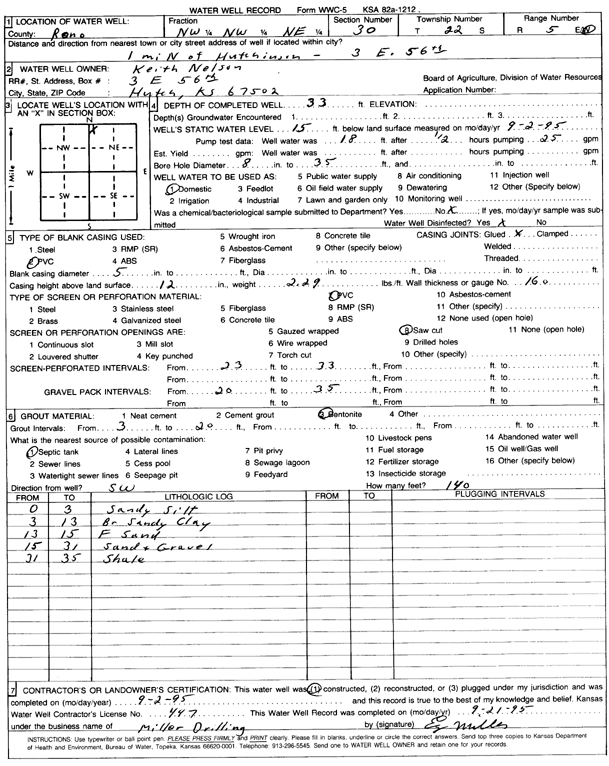 WATER WELL RECORD Form WWC-5 KSA 82a-1212
1 LOCATION OF WATER WELL: Fraction Section Number Township Number Range Number
County: Reno NW ¼ NW ¼ NE ¼ 30 T 22 S R 5 E/W
Distance and direction from nearest town or city street address of well if located within city?
1 mi N of Hutchinson - 3 E. 56th
2 WATER WELL OWNER: Keith Nelson
RR#, St. Address, Box #: 3 E 56th Board of Agriculture, Division of Water Resources
City, State, ZIP Code: Hutch, Ks 67502 Application Number:
3 LOCATE WELL'S LOCATION WITH AN "X" IN SECTION BOX:
N
X
NW NE
W E
SW SE
S
1 Mile
4 DEPTH OF COMPLETED WELL 33 ft. ELEVATION:
Depth(s) Groundwater Encountered 1. ft. 2. ft. 3. ft.
WELL'S STATIC WATER LEVEL 15 ft. below land surface measured on mo/day/yr 9-2-95
Pump test data: Well water was 18 ft. after 1/2 hours pumping 25 gpm
Est. Yield gpm: Well water was ft. after hours pumping gpm
Bore Hole Diameter 8 in. to 35 ft., and in. to ft.
WELL WATER TO BE USED AS: 5 Public water supply 8 Air conditioning 11 Injection well
1 Domestic 3 Feedlot 6 Oil field water supply 9 Dewatering 12 Other (Specify below)
2 Irrigation 4 Industrial 7 Lawn and garden only 10 Monitoring well
Was a chemical/bacteriological sample submitted to Department? Yes No X ; If yes, mo/day/yr sample was submitted
Water Well Disinfected? Yes X No
5 TYPE OF BLANK CASING USED: 5 Wrought iron 8 Concrete tile CASING JOINTS: Glued X Clamped
1 Steel 3 RMP (SR) 6 Asbestos-Cement 9 Other (specify below) Welded
2 PVC 4 ABS 7 Fiberglass Threaded
Blank casing diameter 5 in. to ft., Dia in. to ft., Dia in. to ft.
Casing height above land surface 12 in., weight 2.29 lbs./ft. Wall thickness or gauge No. 160
TYPE OF SCREEN OR PERFORATION MATERIAL: 7 PVC 10 Asbestos-cement
1 Steel 3 Stainless steel 5 Fiberglass 8 RMP (SR) 11 Other (specify)
2 Brass 4 Galvanized steel 6 Concrete tile 9 ABS 12 None used (open hole)
SCREEN OR PERFORATION OPENINGS ARE: 5 Gauzed wrapped 8 Saw cut 11 None (open hole)
1 Continuous slot 3 Mill slot 6 Wire wrapped 9 Drilled holes
2 Louvered shutter 4 Key punched 7 Torch cut 10 Other (specify)
SCREEN-PERFORATED INTERVALS: From 23 ft. to 33 ft., From ft. to ft.
From ft. to ft., From ft. to ft.
GRAVEL PACK INTERVALS: From 20 ft. to 35 ft., From ft. to ft.
From ft. to ft., From ft. to ft.
6 GROUT MATERIAL: 1 Neat cement 2 Cement grout 3 Bentonite 4 Other
Grout Intervals: From 3 ft. to 20 ft., From ft. to ft., From ft. to ft.
What is the nearest source of possible contamination: 10 Livestock pens 14 Abandoned water well
1 Septic tank 4 Lateral lines 7 Pit privy 11 Fuel storage 15 Oil well/Gas well
2 Sewer lines 5 Cess pool 8 Sewage lagoon 12 Fertilizer storage 16 Other (specify below)
3 Watertight sewer lines 6 Seepage pit 9 Feedyard 13 Insecticide storage
Direction from well? SW How many feet? 140
FROM TO LITHOLOGIC LOG FROM TO PLUGGING INTERVALS
0 3 Sandy Silt
3 13 Br Sandy Clay
13 15 F Sand
15 31 Sand + Gravel
31 35 Shale
7 CONTRACTOR'S OR LANDOWNER'S CERTIFICATION: This water well was (1) constructed, (2) reconstructed, or (3) plugged under my jurisdiction and was
completed on (mo/day/year) 9-2-95 and this record is true to the best of my knowledge and belief. Kansas
Water Well Contractor's License No. 447 This Water Well Record was completed on (mo/day/yr) 9-21-95
under the business name of Miller Drilling by (signature) Miller
INSTRUCTIONS: Use typewriter or ball point pen. PLEASE PRESS FIRMLY and PRINT clearly. Please fill in blanks, underline or circle the correct answers. Send top three copies to Kansas Department
of Health and Environment, Bureau of Water, Topeka, Kansas 66620-0001. Telephone 913-296-5545. Send one to WATER WELL OWNER and retain one for your records.